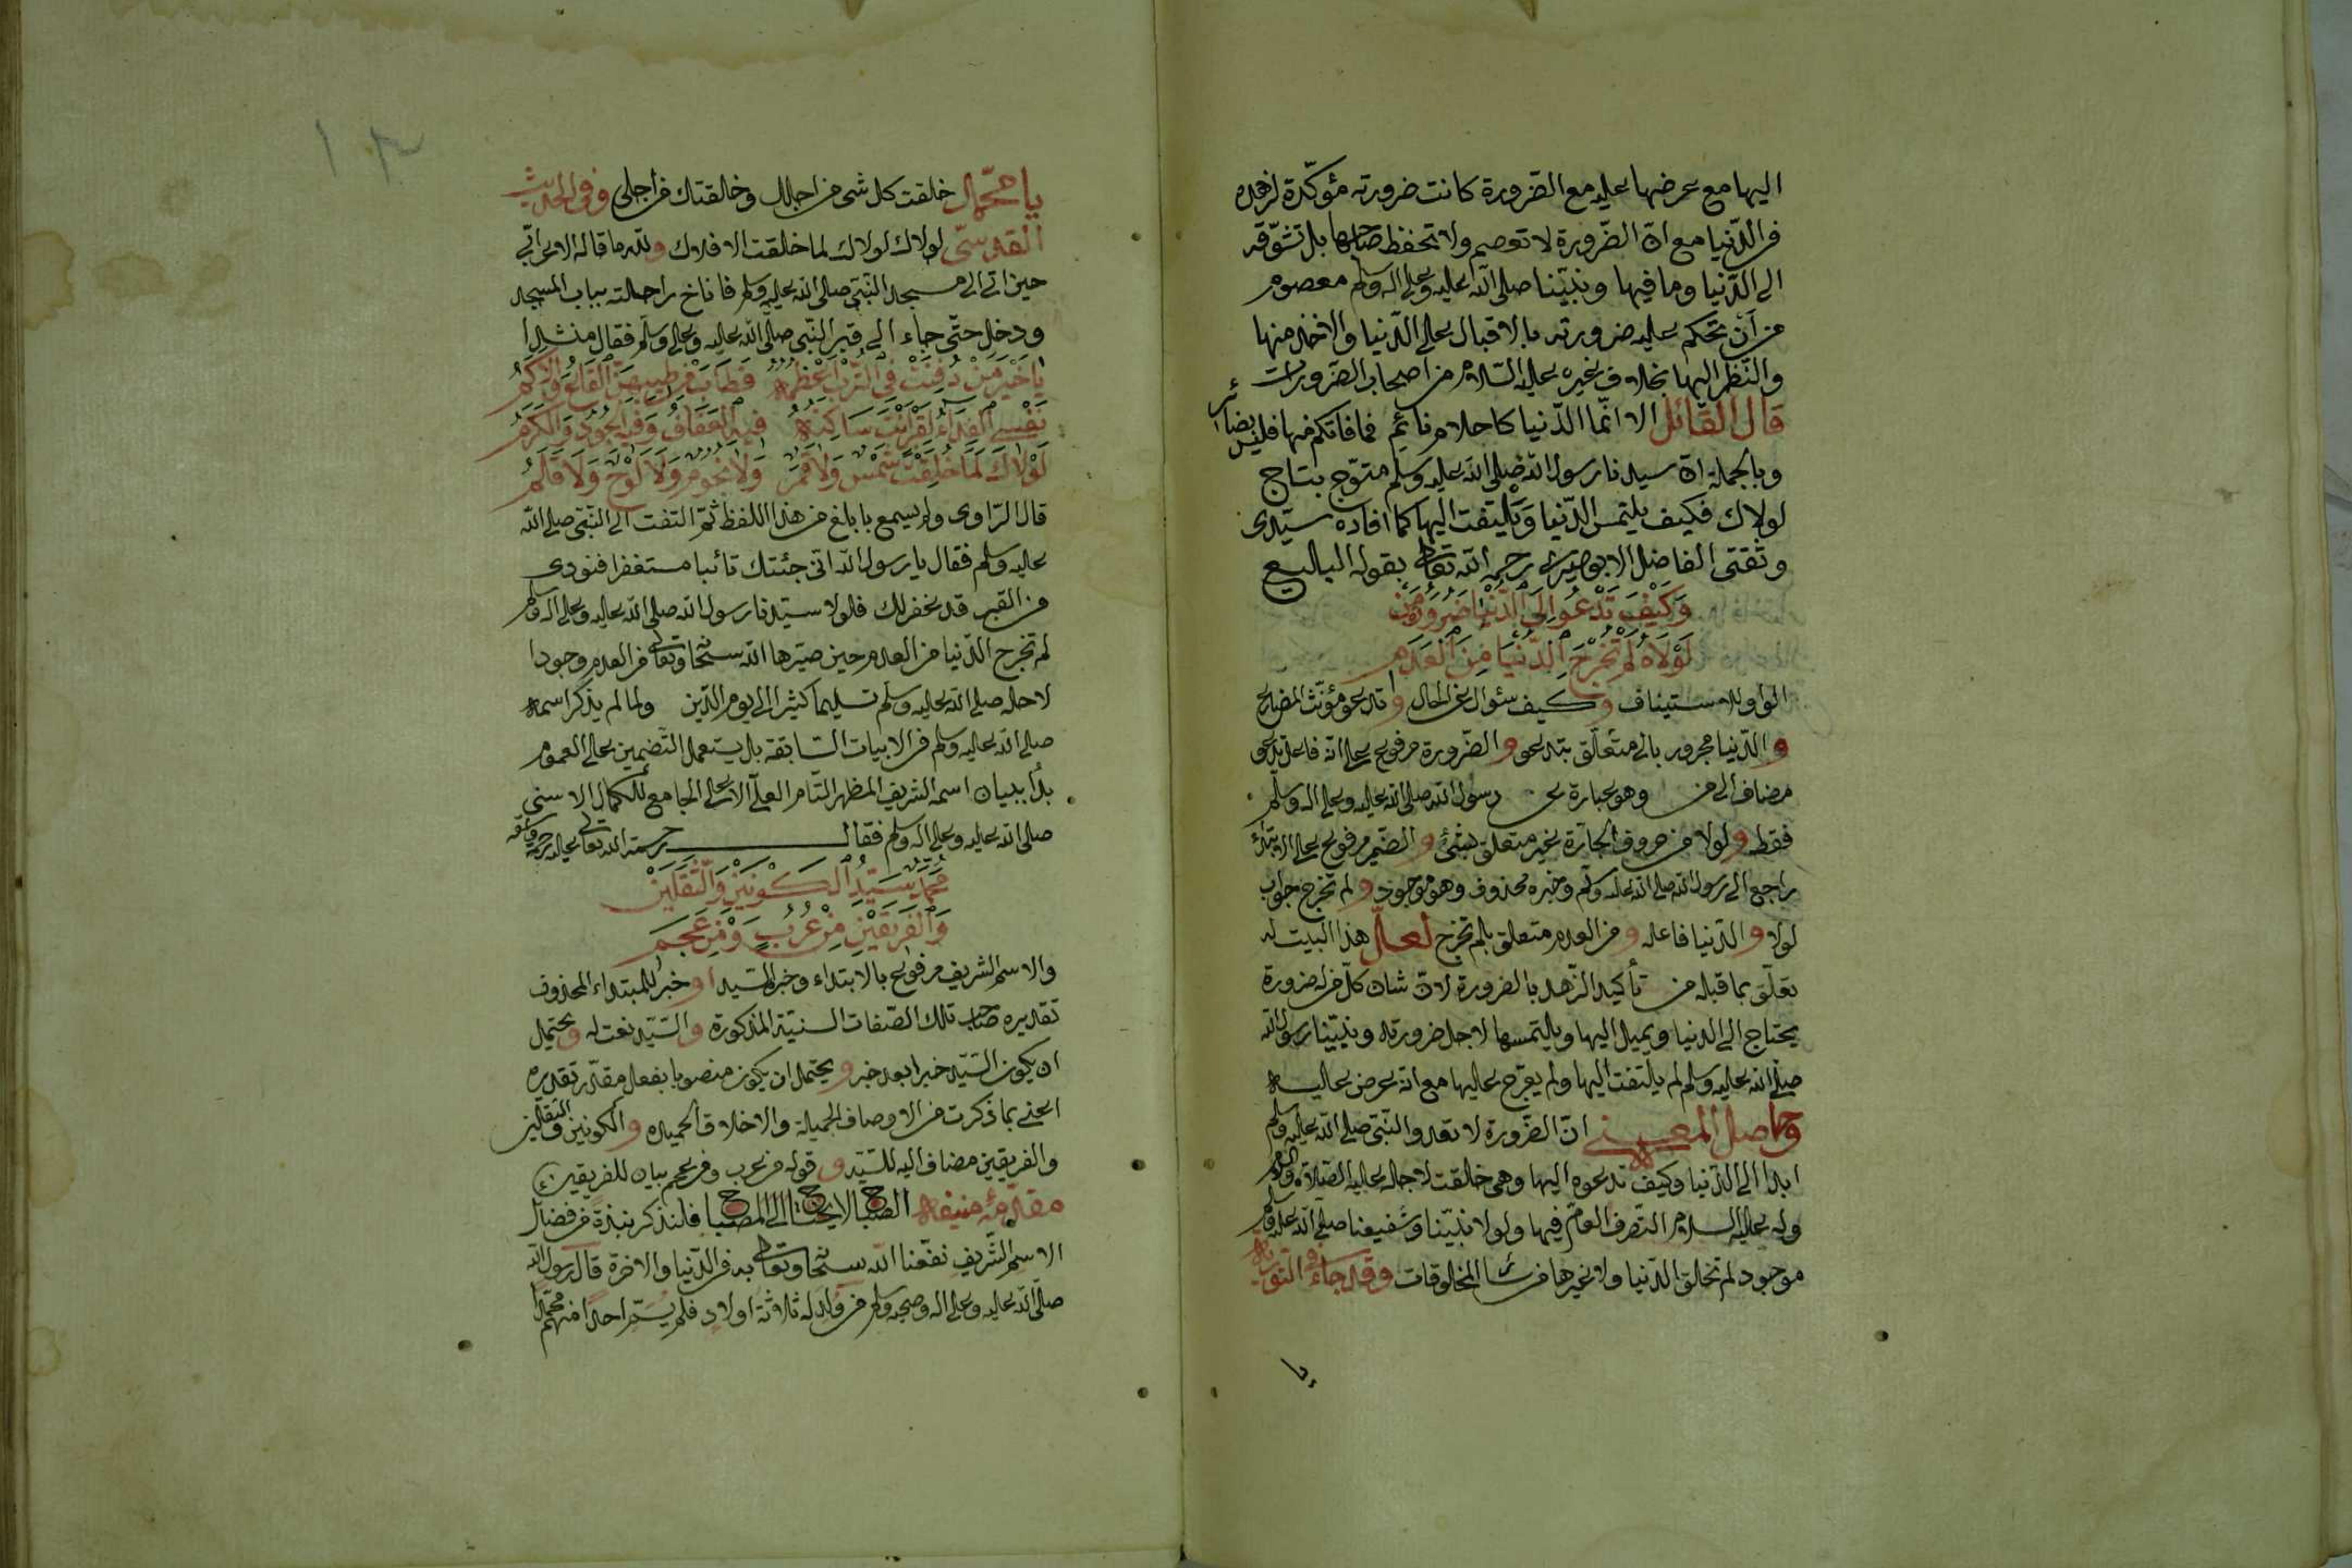 اليها مع عرضها عليه مع الضرورة كانت ضرورته مؤكّدة لزهده
في الدّنيا مع انّ الضّرورة لا تعصم ولا تحفظ صاحبها بل تشوّقه
الى الدّنيا وما فيها ونبيّنا صلى الله عليه وعلى اله وسلم معصوم
من أن تحكم عليه ضرورته بالاقبال على الدّنيا والاخذ منها
والنّظر اليها بخلاف غيره عليه السّلام من اصحاب الضّرورات
قال القائل الا انّما الدّنيا كاحلام نائم فما فاتكم منها فليس بضائر
وبالجملة انّ سيدنا رسول الله صلى الله عليه وسلم متوّج بتاج
لولاك فكيف يلتمس الدّنيا ويلتفت اليها كما افاده سيّدى
وثقتى الفاضل الابوصيرى رحمه الله تعالى بقوله البليع
وَكَيْفَ تَدْعُو اِلَى الدُّنْيَا ضَرُورَةُ مَنْ
لَوْلَاهُ لَمْ تَخْرُجِ الدُّنْيَا مِنَ الْعَدَمِ
الواو للاستيناف و كيف سئوال عن الحال و تدعو مؤنّث المضارع
و الدّنيا مجرور بالى متعلّق بتدعو و الضّرورة مرفوع على انّه فاعل تدعو
مضاف الى من وهو عبارة عن رسول الله صلى الله عليه وعلى اله وسلم
فقط و لولا من حروف الجارّة غير متعلق بشئ و الضّمير مرفوع على الابتداء
راجع الى رسول الله صلى الله عليه وسلم وخبره محذوف وهو موجود و لم تخرج جواب
لولا و الدّنيا فاعله و من العدم متعلق بلم تخرج لعلّ هذا البيت له
تعلّق بما قبله من تأكيد الزّهد بالضرورة لانّ شان كلّ من له ضرورة
يحتاج الى الدنيا ويميل اليها ويلتمسها لاجل ضرورته ونبيّنا رسول الله
صلى الله عليه وسلم لم يلتفت اليها ولم يعرّج عليها مع انه عرض عليه
وحاصل المعنى انّ الضّرورة لا تعدو النّبى صلى الله عليه وسلم
ابدا الى الدّنيا وكيف تدعوه اليها وهى خلقت لاجله عليه الصّلاة والسلام
وله عليه السلام التّصرف العامّ فيها ولولا نبيّنا وشفيعنا صلى الله عليه وسلم
موجود لم تخلق الدّنيا ولا غيرها من سائر المخلوقات وقد جاء فى التّورية
يا
يا محمّد خلقت كل شئ من اجلك وخلقتك من اجلى وفى الحديث
القدسىّ لولاك لولاك لما خلقت الافلاك ولله ما قاله الاعرابّى
حين اتى الى مسجد النّبىّ صلى الله عليه وسلم فاناخ راحلته بباب المسجد
ودخل حتّى جاء الى قبر النّبى صلّى الله عليه وعلى وسلّم فقال منشدا
يَا خَيْرَ مَنْ دُفِنَتْ فِى التُّرْبِ اَعْظُمُهُ فَطَابَ مِنْ طِيبِهِنَّ الْقَاعُ وَالْاَكَمُ
نَفْسِى الْفِدَاءُ لِقَبْرٍ اَنْتَ سَاكِنُهُ فِيهِ الْعَفَافُ وَفِيهِ الْجُودُ وَالْكَرَمُ
لَوْلَاكَ لَمَا خُلِقَتْ شَمْسٌ وَلَا قَمَرٌ وَلَا نُجُومٌ وَلَا لَوْحٌ وَلَا قَلَمُ
قال الرّاوى ولم يسمع بابلغ من هذا اللفظ ثمّ التفت الى النّبىّ صلى الله
عليه وسلم فقال يا رسول الله انى جئتك تائبا مستغفرا فنودى
من القبر قد غفر لك فلولا سيّدنا رسول الله صلى الله عليه وعلى اله وسلم
لم تخرج الدّنيا من العدم حين صيّرها الله سبحانه وتعالى من العدم وجودا
لاجله صلى الله عليه وسلّم تسليما كثيرا الى يوم الدّين ولما لم يذكر اسمه
صلى الله عليه وسلم فى الابيات السّابقة بل يستعمل التّضمين على العموم
بدأ ببيان اسمه الشريف المظهر التّام العلىّ الاعلى الجامع للكمال الاسنى
صلى الله عليه وعلى اله وسلم فقال رحمة الله تعالى عليه
مُحَمَّدٌ سَيِّدُ الْكَوْنَيْنِ وَالثَّقَلَيْنِ
وَالْفَرِيقَيْنِ مِنْ عُرْبٍ وَمِنْ عَجَمِ
والاسم الشريف مرفوع بالابتداء وخبر السّيد او خبر للمبتداء المحذوف
تقديره صاحب تلك الصّفات السنيّة المذكورة والسّيّد نعت له ويحتمل
ان يكون السّيّد خبرا بعد خبر ويحتمل ان يكون منصوبا بفعل مقدّر تقديره
اعنى بما ذكرت من الاوصاف الجميلة والاخلاق الحميدة و الكونين والثقلين
والفريقين مضاف اليه للسّيّد و قوله من عرب ومن عجم بيان للفريقين
مقدّمة منيفة الصّباح لا يحتاج الى المصباح فلنذكر نبذة من فضائل
الاسم الشّريف نفعنا الله سبحانه وتعالى به فى الدّنيا والاخرة قال رسول الله
صلّى الله عليه وعلى اله وصحبه وسلم من ولد له ثلاثة اولاد فلم يسمّ احدا منهم محمّدا